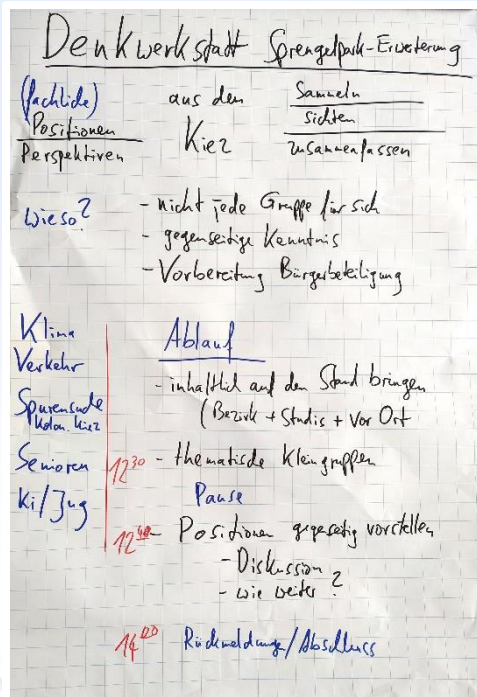 Denkwerkstadt Sprengelpark-Erweiterung
(fachliche)
Positionen
Perspektiven
aus dem
Kiez
Sammeln
sichten
zusammenfassen
wieso?
- nicht jede Gruppe für sich
- gegenseitige Kenntnis
- Vorbereitung Bürgerbeteiligung
Klima
Verkehr
Spurensuche
Kolon. Kiez
Senioren
Ki/Jug
Ablauf
- inhaltlich auf den Stand bringen
(Bezirk + Studis + Vor Ort
12 30 - thematische Kleingruppen
Pause
12 40 - Positionen gegenseitig vorstellen
- Diskussion
- wie weiter?
14 00 Rückmeldunge/Abschluss